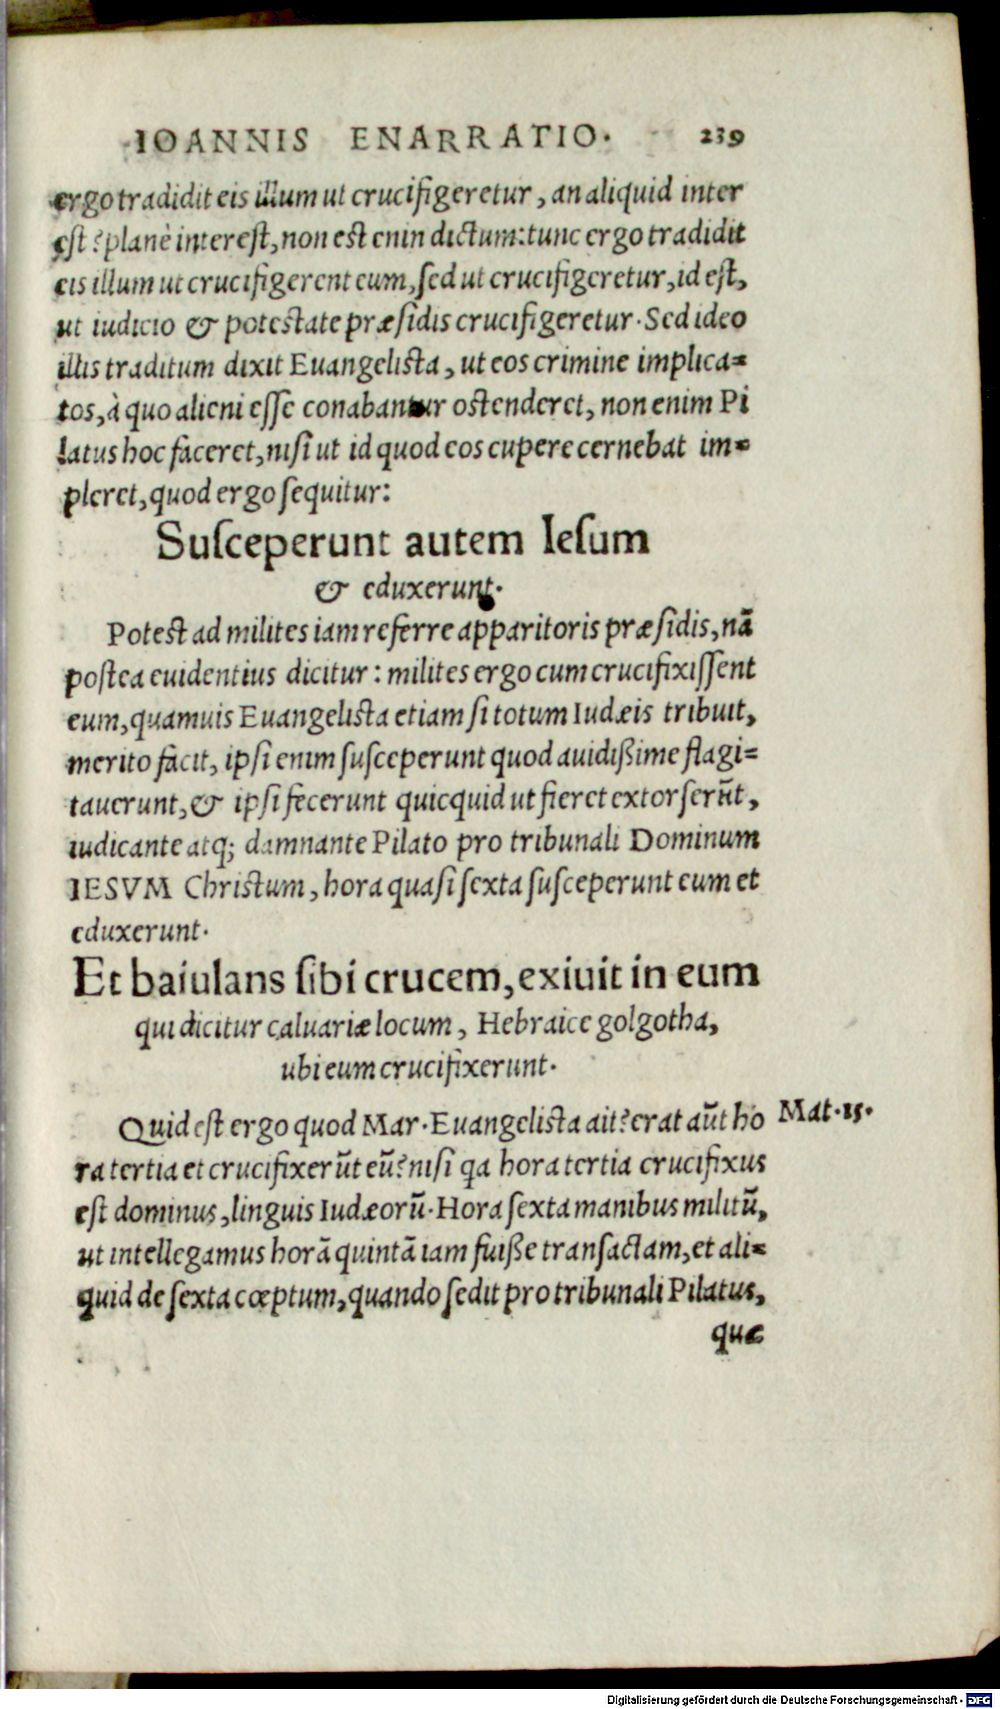 IOANNIS ENARRATIO. 239
ergo tradidit eis illum ut crucifigeretur, an aliquid inter
est? planè interest, non est enin dictum: tunc ergo tradidit
eis illum ut crucifigerent eum, sed ut crucifigeretur, id est,
ut iudicio & potestate præsidis crucifigeretur. Sed ideo
illis traditum dixit Euangelista, ut eos crimine implica=
tos, à quo alieni esse conabantur ostenderet, non enim Pi
latus hoc faceret, nisi ut id quod eos cupere cernebat im=
pleret, quod ergo sequitur:
Susceperunt autem Iesum
& eduxerunt.
Potest ad milites iam referre apparitoris præsidis, nã
postea euidentius dicitur: milites ergo cum crucifixissent
eum, quamuis Euangelista etiam si totum Iudæis tribuit,
merito facit, ipsi enim susceperunt quod auidißime flagi=
tauerunt, & ipsi fecerunt quicquid ut fieret extorserũt,
iudicante atq; damnante Pilato pro tribunali Dominum
IESVM Christum, hora quasi sexta susceperunt eum et
eduxerunt.
Et baiulans sibi crucem, exiuit in eum
qui dicitur caluariæ locum, Hebraice golgotha,
ubi eum crucifixerunt.
Quid est ergo quod Mar. Euangelista ait? erat aũt ho
ra tertia et crucifixerũt eũ? nisi qa hora tertia crucifixus
est dominus, linguis Iudæorũ. Hora sexta manibus militũ,
ut intellegamus horã quintã iam fuiße transactam, et ali=
quid de sexta cœptum, quando sedit pro tribunali Pilatus,
quæ
Mat. 15.
Digitalisierung gefördert durch die Deutsche Forschungsgemeinschaft - DFG